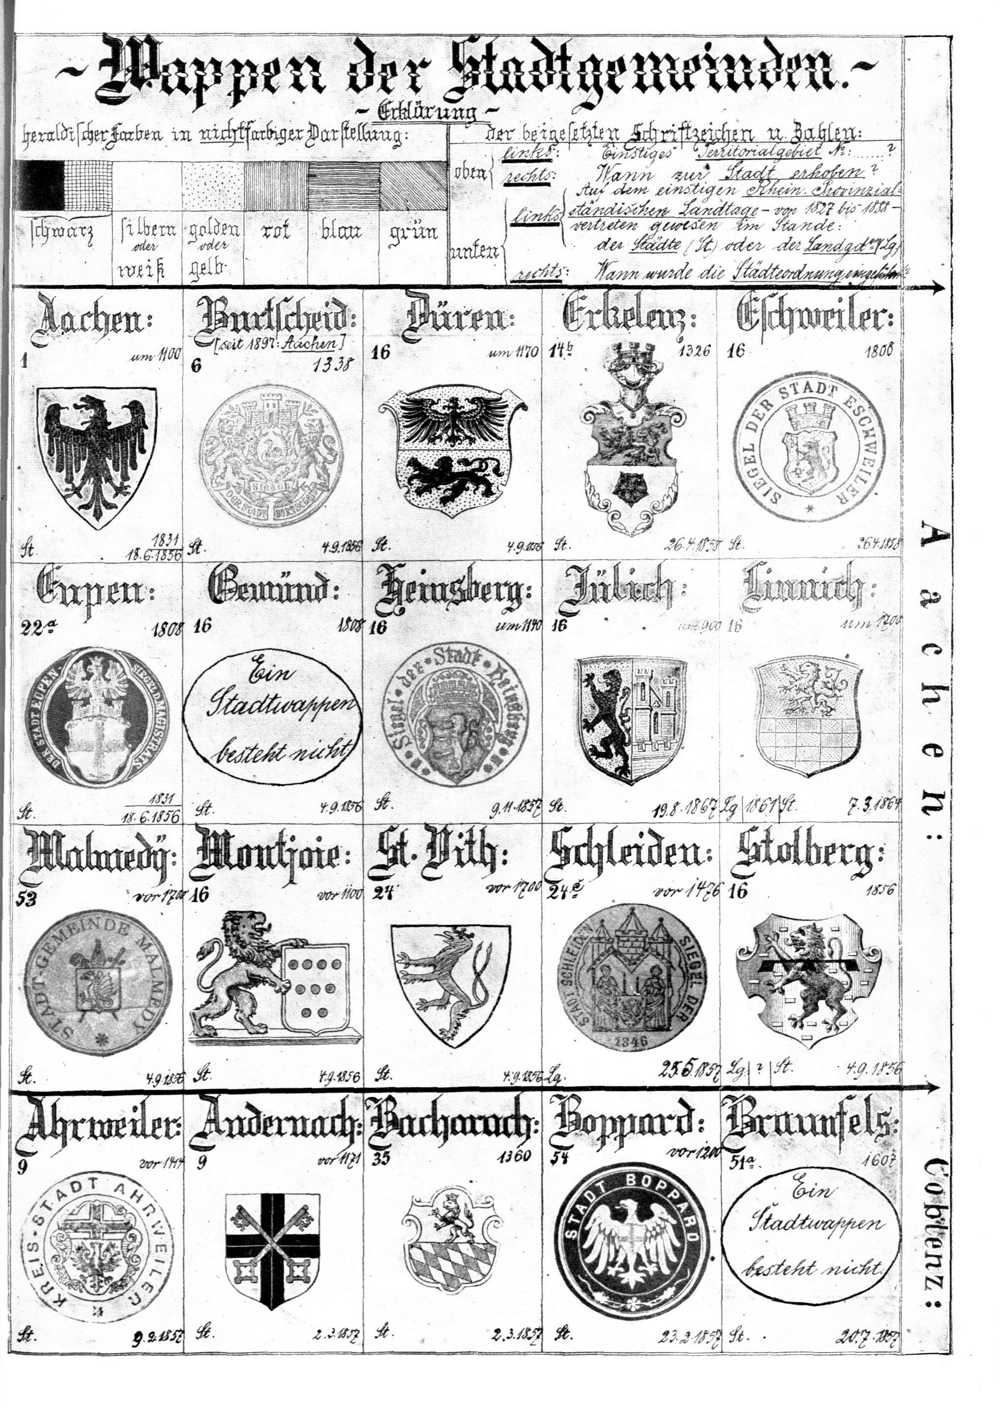 ~ Wappen der Stadtgemeinden. ~
~ Erklärung ~
heraldischer Farben in nichtfarbiger Darstellung:
schwarz
silbern oder weiß
golden oder gelb.
rot
blau
grün
der beigesetzten Schriftzeichen u. Zahlen:
oben
links: Einstiges Territorialgebiet №: ......?
rechts: Wann zur Stadt erhoben?
unten
links
Auf dem einstigen Rhein. Provinzial-
ständischen Landtage – von 1827 bis 1888 –
vertreten gewesen im Stande:
der Städte (St) oder der Landgd. (Lg)
rechts: Wann wurde die Städteordnung eingeführt?
Aachen:
1 um 1100
St. 1831
18.6.1856
Burtscheid:
[seit 1897: Aachen]
6 1338
St. 4.9.1856
Düren:
16 um 1170
St. 4.9.1856
Erkelenz:
14b 1326
St. 26.4.1858
Eschweiler:
16 1808
SIEGEL DER STADT ESCHWEILER
St. 26.4.1858
Eupen:
22a 1808
DER STADT EUPEN. SIEGEL D. MAGISTRATS
St. 1831
18.6.1856
Gemünd:
16 1808
Ein
Stadtwappen
besteht nicht
St. 4.9.1856
Heinsberg:
16 um 1140
Siegel der Stadt Heinsberg
St. 9.11.1857
Jülich:
16 um 900
St. 19.8.1867
Linnich:
16 um 1200
Lg | 1861 | St. 7.3.1864
Malmedÿ:
53 vor 1700
STADT-GEMEINDE MALMEDY
St. 4.9.1856
Montjoie:
16 vor 1100
St. 4.9.1856
St. Vith:
24 vor 1700
St. 4.9.1856
Schleiden:
24c vor 1476
SIEGEL DER STADT SCHLEIDEN
1846
Lg. 25.5.1857
Stolberg:
16 1856
Lg | ? | St. 4.9.1856
Aachen:
Ahrweiler:
9 vor 1414
KREIS-STADT AHRWEILER
St. 9.2.1857
Andernach:
9 vor 1171
St. 2.3.1857
Bacharach:
35 1360
St. 2.3.1857
Boppard:
54 vor 1200
STADT BOPPARD
St. 23.2.1857
Braunfels:
51a 1607
Ein
Stadtwappen
besteht nicht.
St. 20.7.1857
Coblenz: